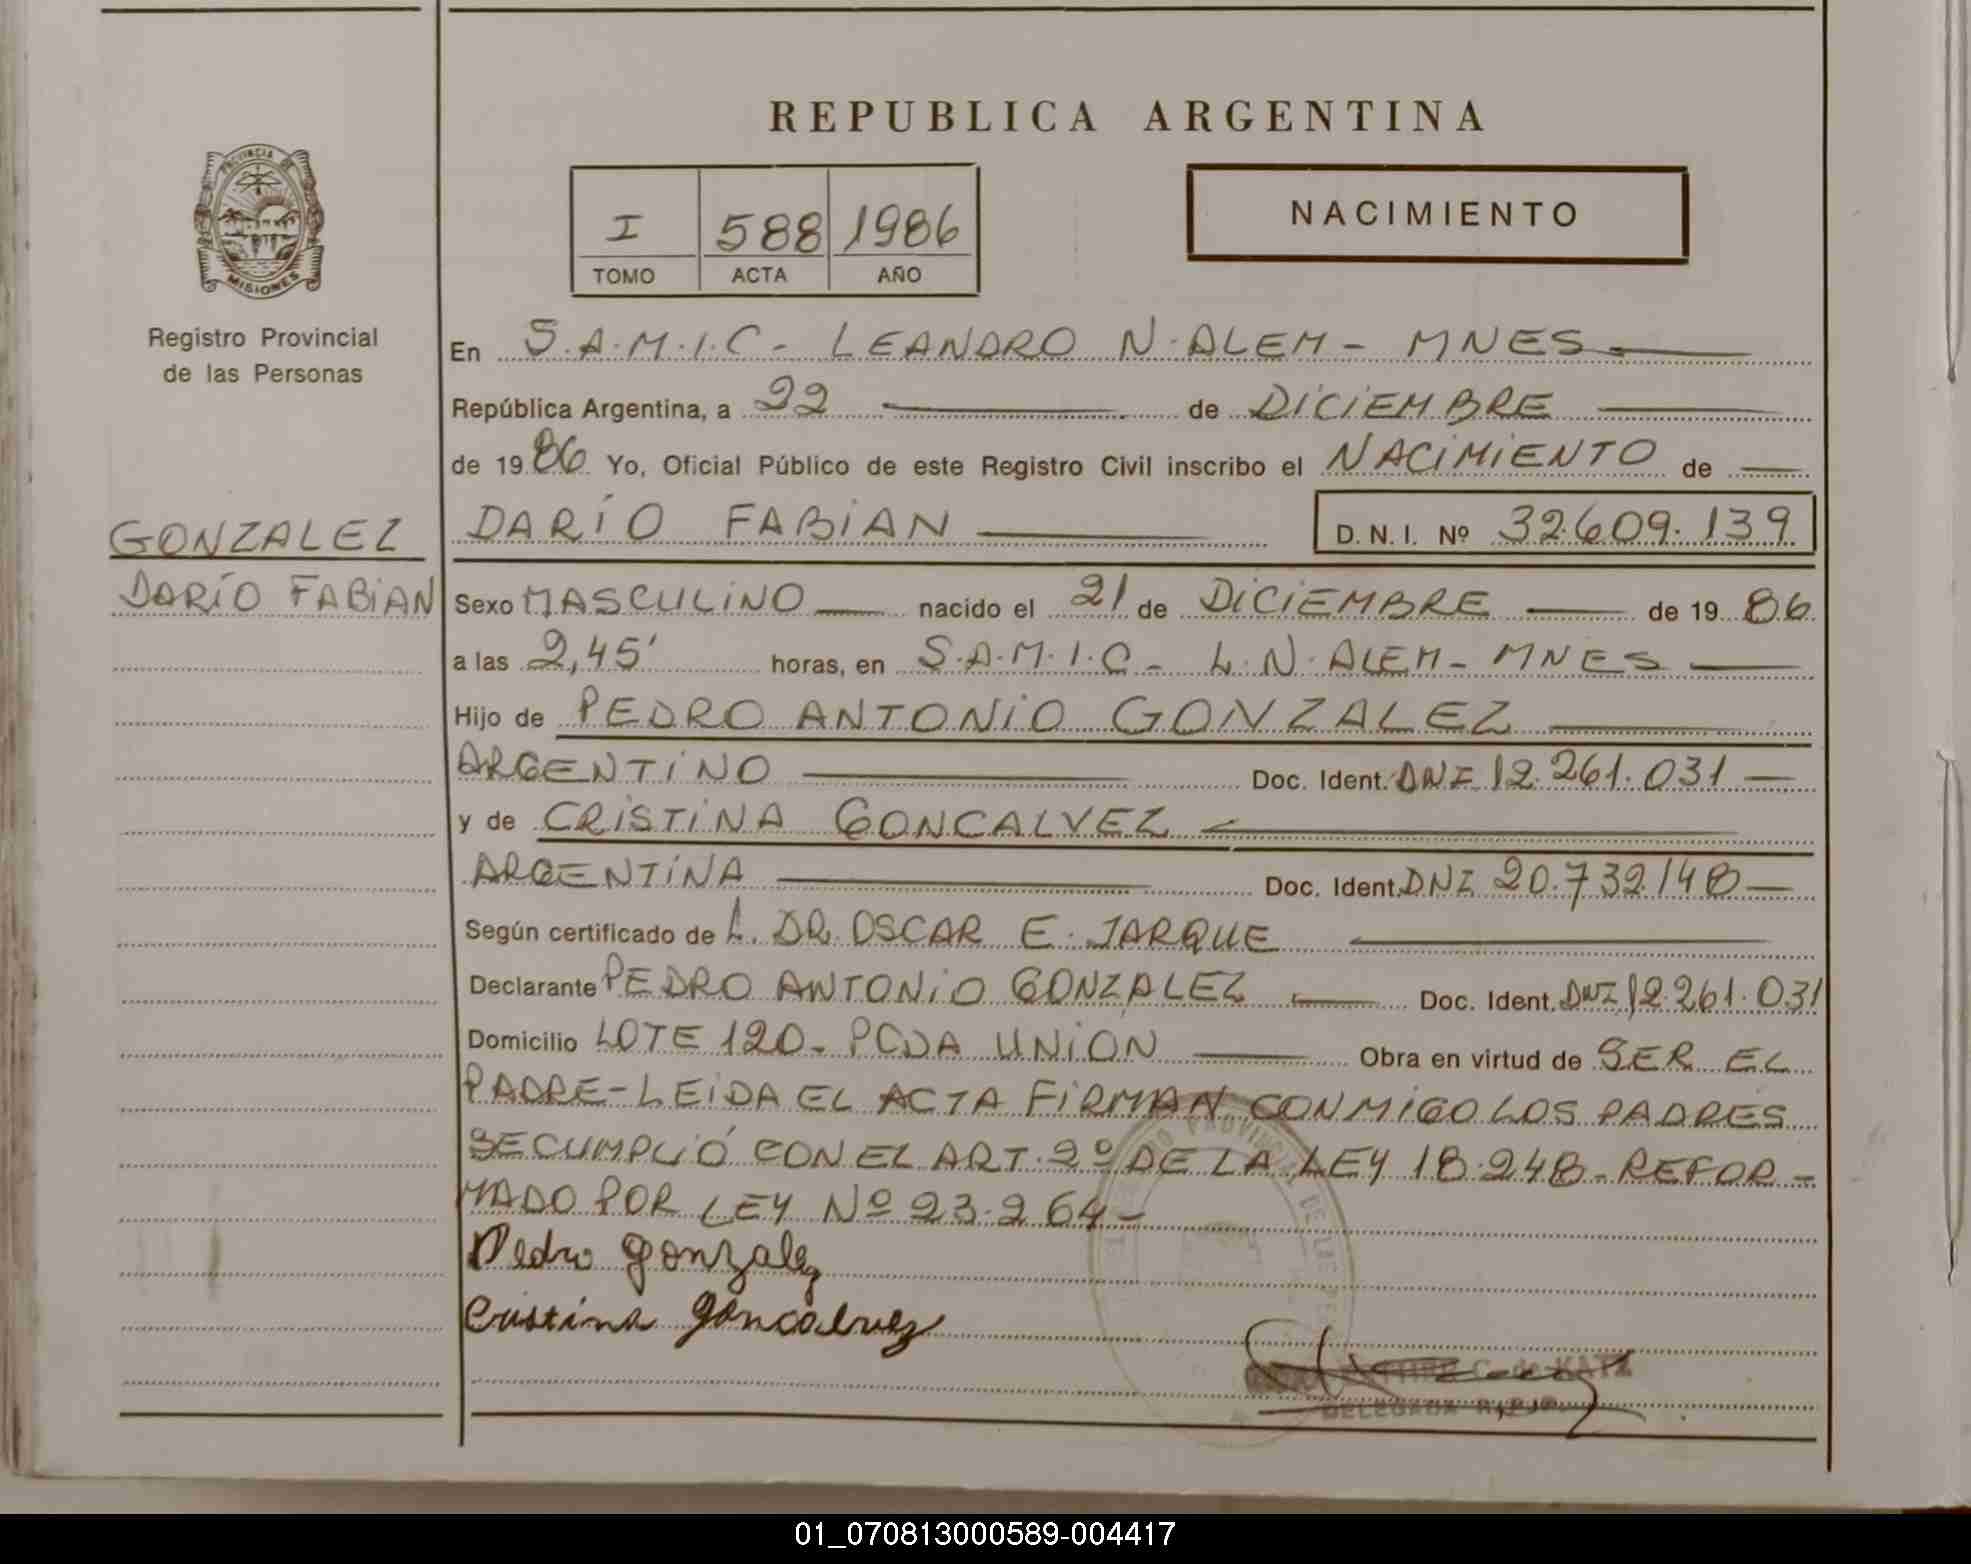 REPUBLICA ARGENTINA
PROVINCIA DE
MISIONES
Registro Provincial
de las Personas
I 588 1986
TOMO ACTA AÑO
NACIMIENTO
En S.A.M.I.C- LEANDRO N. ALEM- MNES
República Argentina, a 22 de DICIEMBRE
de 1986 Yo, Oficial Público de este Registro Civil inscribo el NACIMIENTO de
GONZALEZ
DARÍO FABIAN
DARÍO FABIAN D.N.I. Nº 32.609.139
Sexo MASCULINO nacido el 21 de DICIEMBRE de 1986
a las 2,45' horas, en S.A.M.I.C- L.N. ALEM- MNES
Hijo de PEDRO ANTONIO GONZALEZ
ARGENTINO Doc. Ident. DNI 12.261.031
y de CRISTINA GONCALVEZ
ARGENTINA Doc. Ident. DNI 20.732.148
Según certificado de DR. OSCAR E. JARQUE
Declarante PEDRO ANTONIO GONZALEZ Doc. Ident. DNI 12.261.031
Domicilio LOTE 120- PCDA UNION Obra en virtud de SER EL
PADRE- LEIDA EL ACTA FIRMAN CONMIGO LOS PADRES
SE CUMPLIÓ CON EL ART. 2º DE LA LEY 18.248- REFOR-
MADO POR LEY Nº 23.264-
Pedro Gonzalez
Cristina Goncalvez
C. de KATZ
DELEGADA
01_070813000589-004417